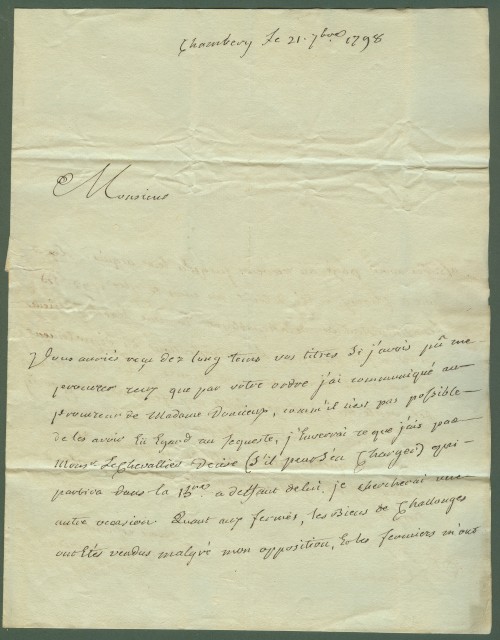 Chambery Le 21. 7bre 1798
Monsieur
Vous auriés reçu dez long tems vos titres Si j'avois pû me
procurer ceux que par votre ordre j'ai communiqué au
procureur de Madame Doncieux, comm'il n'est pas possible
de les avoir En Egard au sequestre, j'Enverrai ce que j'ais par
Monsr. Le Chevallier Derise (S'il peut s'en Charger) qui
partira dans la 15ne a deffaut de lui, je chercherai une
autre occasion. Quant aux fermés, les Biens de Challonges
ont Etés vendus malgré mon opposition, Et les fermiers m'ont